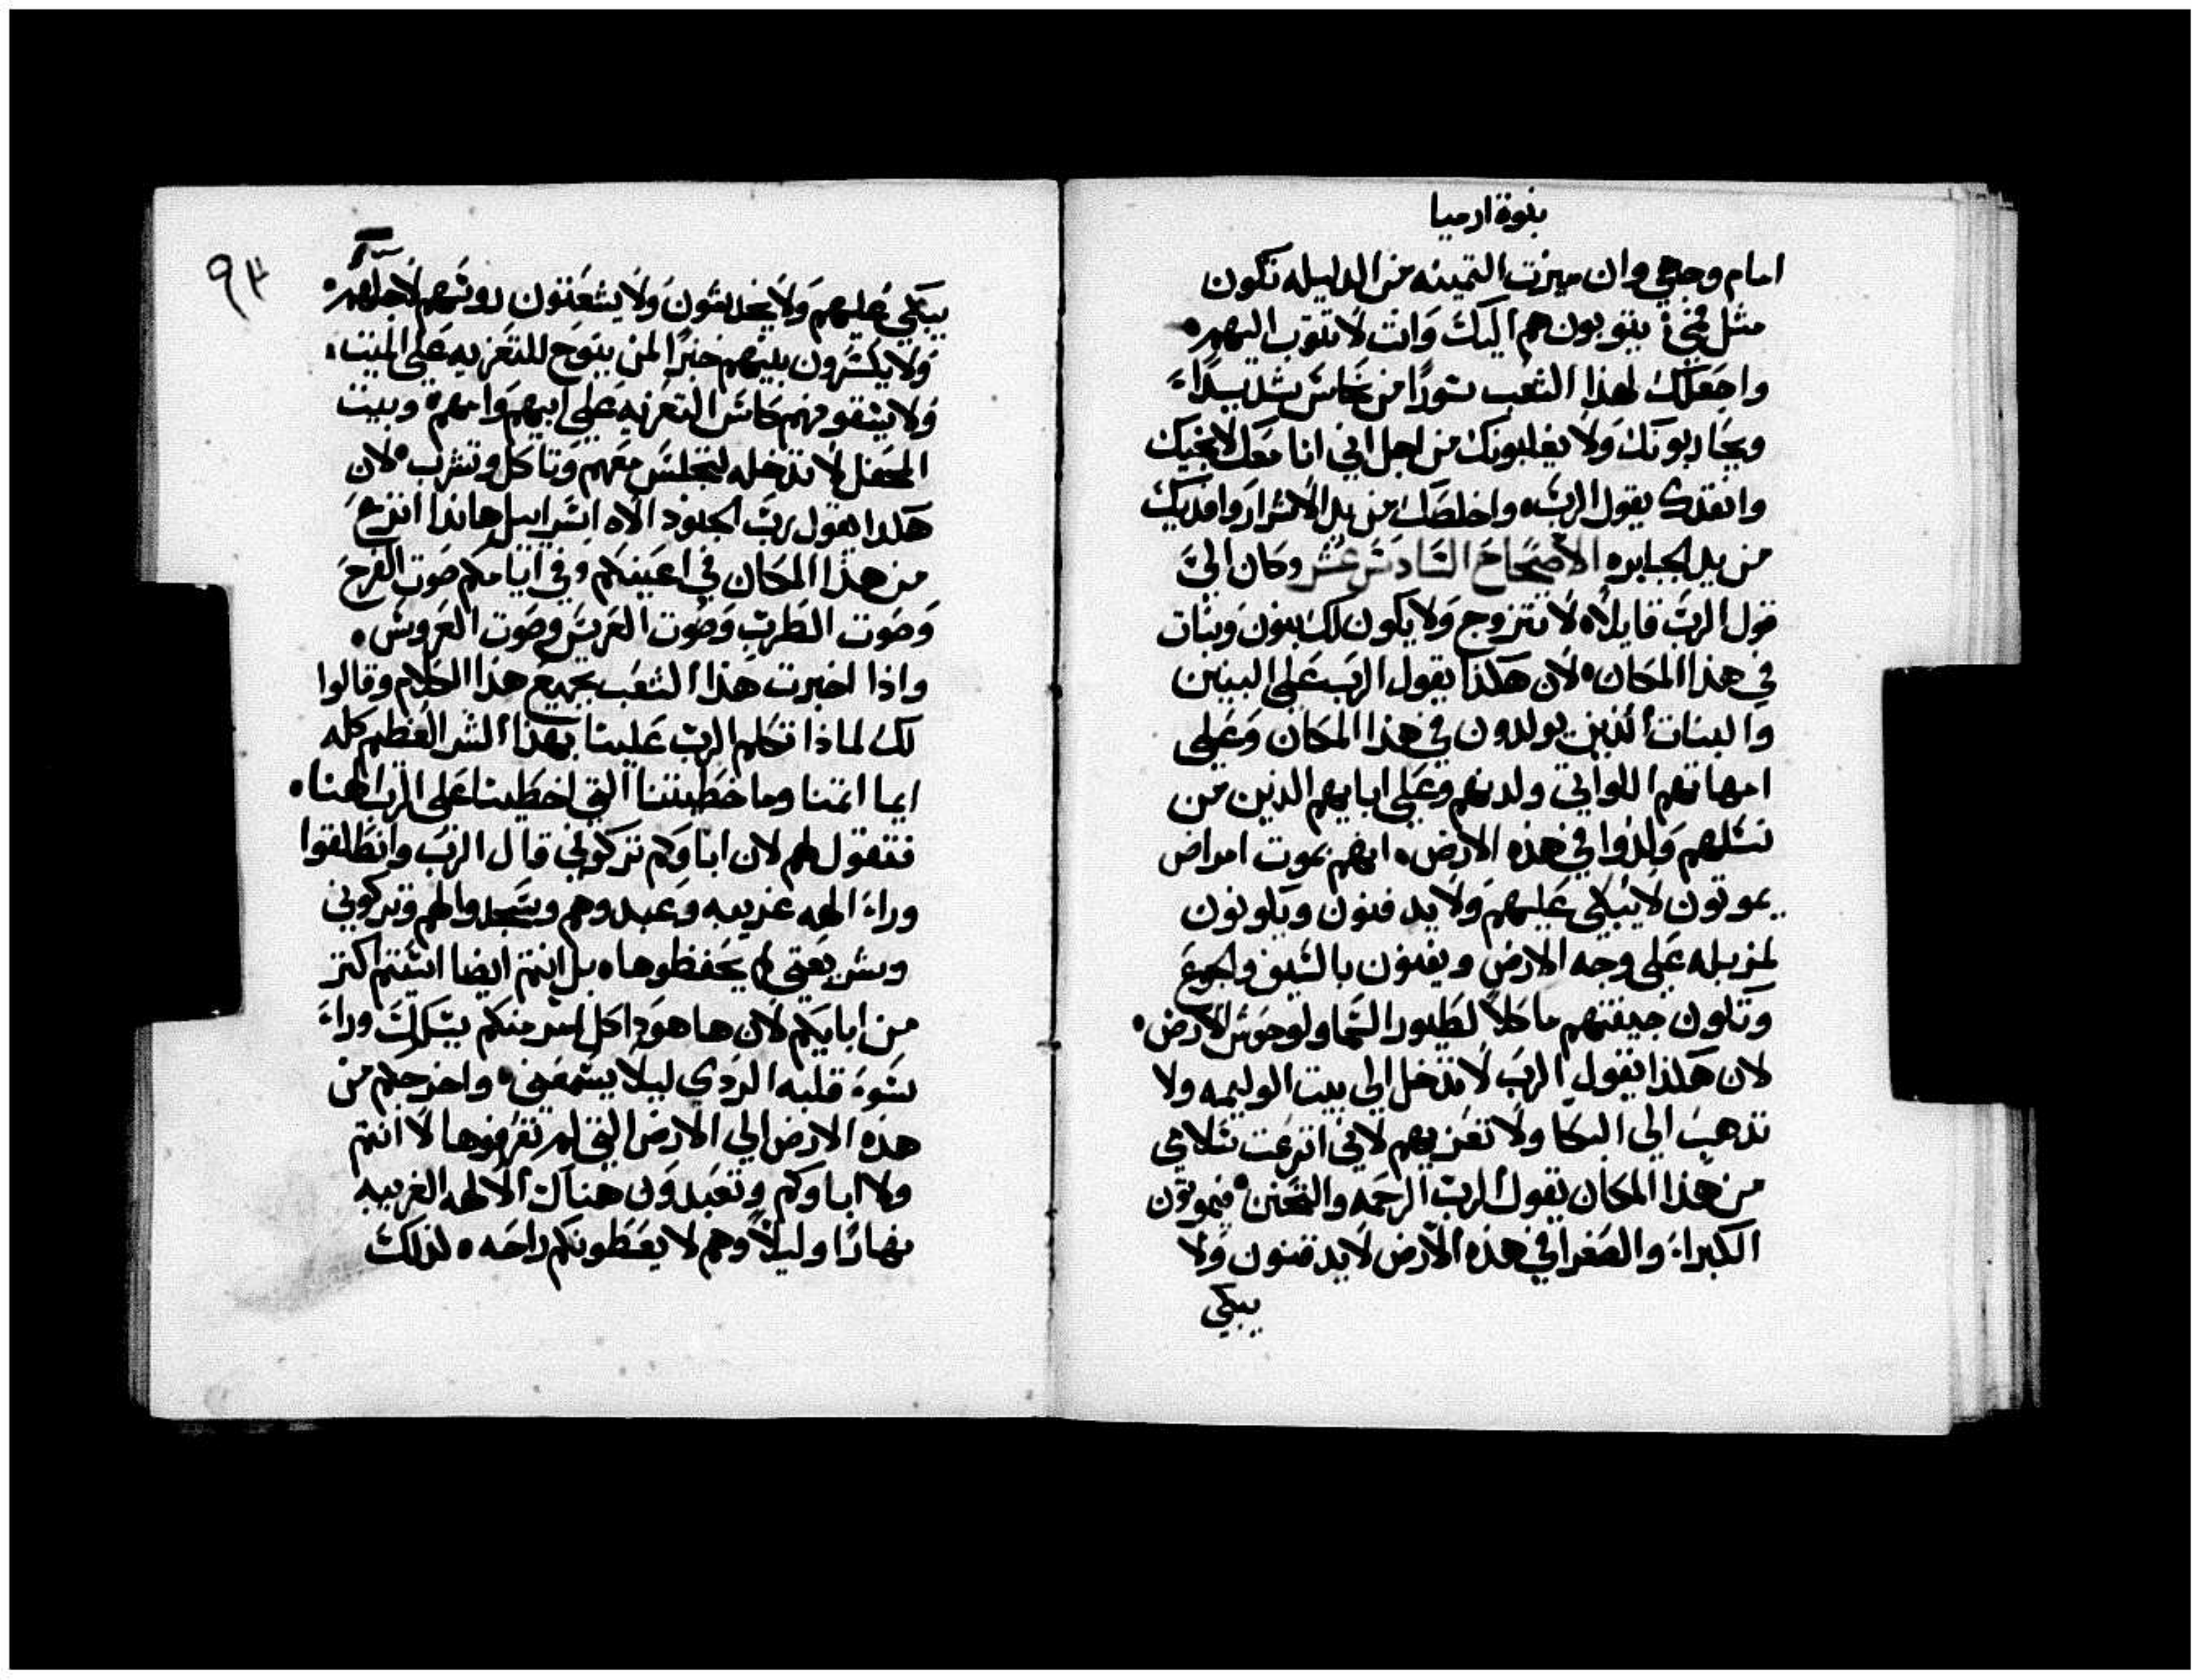 بنوة ارميا
امام وجهي وان ميزت التمينه من الدليله تكون
مثل فمي ينوبون هم اليك وانت لا تتوب اليهم
واجعلك لهذا الشعب سورًا من نحاس شديدًا
ويحاربونك ولا يغلبونك من اجل اني انا معك لانجيك
وانقدك يقول الرب واخلصك من يد الاشرار وافديك
من يد الجبابره الاصحاح السادس عشر وكان اليَّ
قول الرب قايلاً لا تتزوج ولا يكون لك بنون وبنات
في هذا المكان لان هكذا يقول الرب على البنين
والبنات الذين يولدون في هذا المكان وعلى
امهاتهم اللواتي ولدنهم وعلى ابايهم الذين من
نسلهم ولدوا في هذه الارض انهم بموت امراض
يموتون لا يبكى عليهم ولا يدفنون ويكونون
لمزبله على وجه الارض ويفنون بالسيف والجوع
وتكون جيفتهم ماكلاً لطيور السما ولوحوش الارض
لان هكذا يقول الرب لا تدخل الى بيت الوليمه ولا
تذهب الى البكا ولا تعزيهم لاني انزعت سلامي
من هذا المكان يقول الرب الرحمه والتحنن فيموتون
الكبراء والصغرا في هذه الارض لا يدفنون ولا
يبكى
٩٣
يبكى عليهم ولا يخدشون ولا يشعثون روسهم لاجلهم
ولا يكسرون بينهم خبزًا لمن ينوح للتعزيه على الميت
ولا يسقونهم كاس التعزيه على ابيهم وامهم وبيت
المحفل لا تدخله لتجلس معهم وتاكل وتشرب لان
هكدا يقول رب الجنود الاه اسراييل هاندا انزع
من هذا المكان في اعينكم وفي ايامكم صوت الفرح
وصوت الطرب وصوت العريس وصوت العروس
واذا اخبرت هذا الشعب بجميع هذا الكلام وقالوا
لك لماذا تكلم الرب علينا بهذا الشر العظيم كله
ايما اثمنا وما خطيتنا التي اخطينا على الرب الهنا
فتقول لهم لان اباوكم تركوني قال الرب وانطلقوا
وراء الهه غريبه وعبدوهم وسجدوا لهم وتركوني
وشريعتي لم يحفظوها بل انتم ايضا اسيتم اكتر
من ابايكم لان ها هو دا كل امر منكم يسلك وراء
سوء قلبه الردي ليلا يسمعني واخرجكم من
هذه الارض الى الارض التي لم تعرفوها لا انتم
ولا اباوكم وتعبدون هناك الالهه الغريبه
نهارًا وليلاً وهم لا يعطونكم راحه لذلك